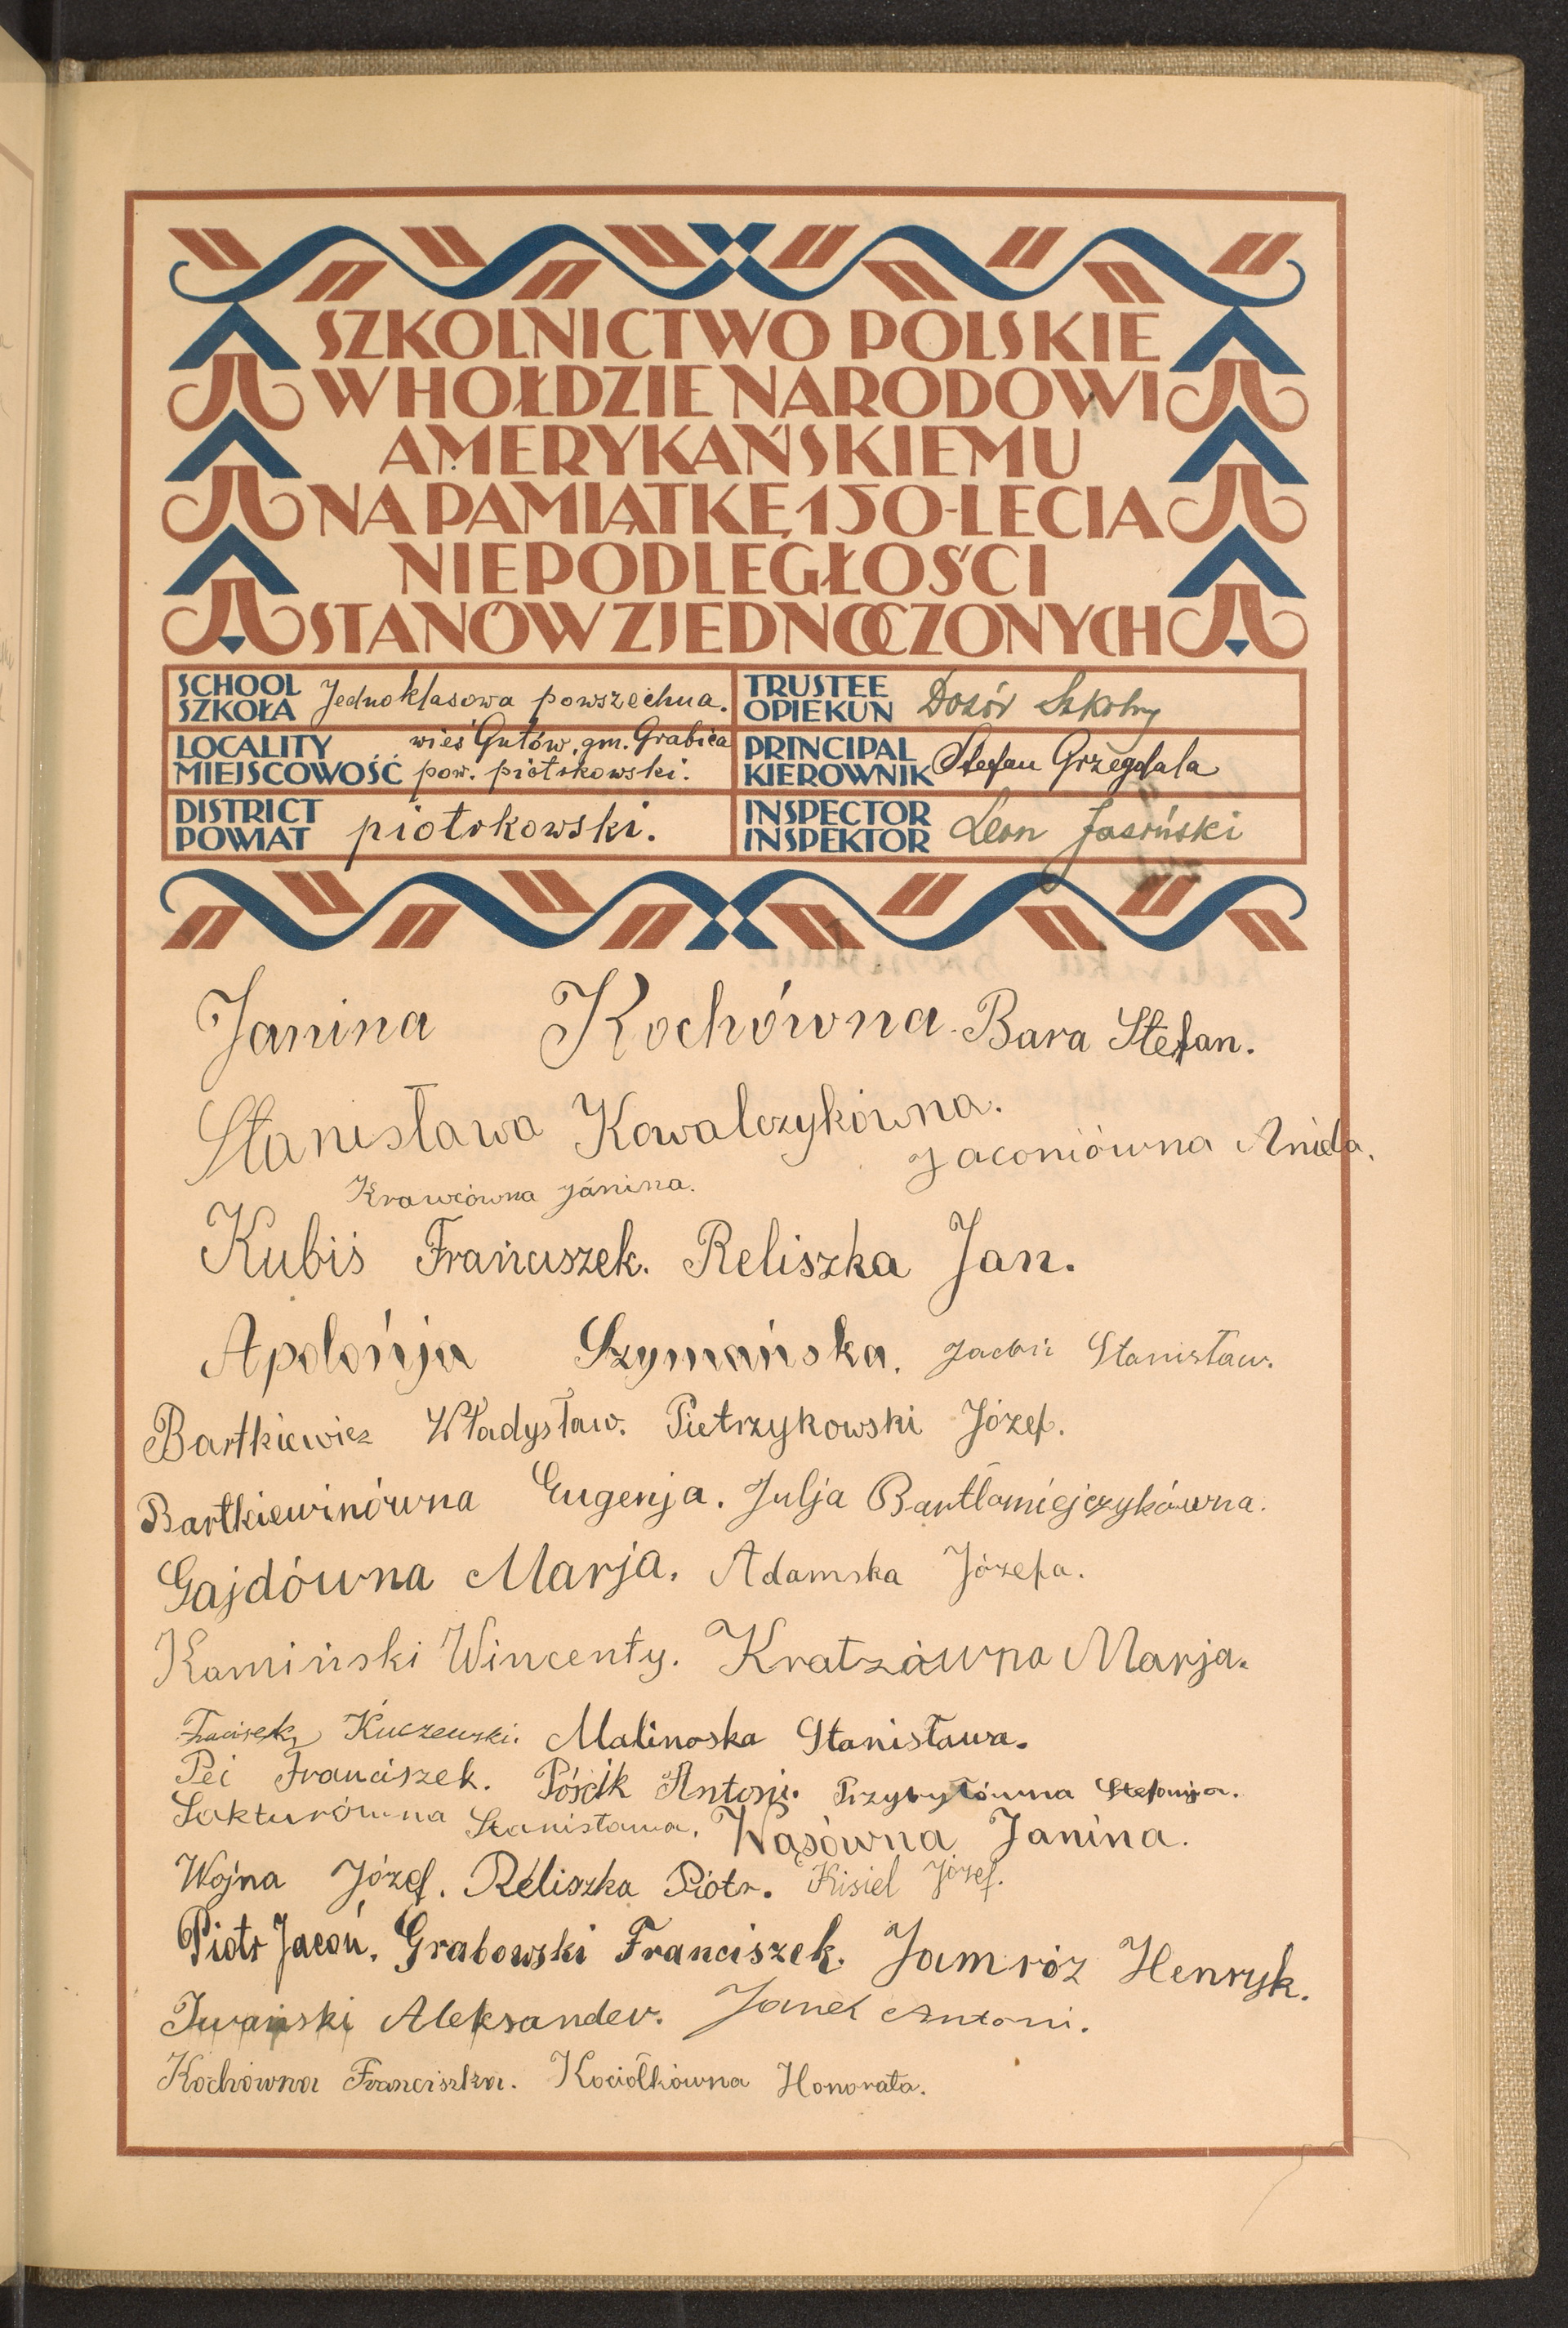 SZKOLNICTWO POLSKIE
W HOŁDZIE NARODOWI
AMERYKAŃSKIEMU
NA PAMIĄTKĘ 150-LECIA
NIEPODLEGŁOŚCI
STANÓW ZJEDNOCZONYCH
SCHOOL
SZKOŁA Jednoklasowa powszechna.
TRUSTEE
OPIEKUN Dozór Szkolny
LOCALITY wieś Gutów, gm. Grabica
MIEJSCOWOŚĆ pow. piotrkowski.
PRINCIPAL
KIEROWNIK Stefan Grzegdala
DISTRICT
POWIAT piotrkowski.
INSPECTOR
INSPEKTOR Leon Jasiński
Janina Kochówna. Bara Stefan.
Stanisława Kowalczykówna.
Jaconiówna
Krawcówna Janina.
Kubiś Franciszek. Reliszka Jan.
Apolońja Szymańska. Stanisław.
Bartkiewicz Władysław. Pietrzykowski Józef.
Bartkiewinówna Eugenja. Julja Bartłomiejczykówna.
Gajdówna Marja. Adamska Józefa.
Kamiński Wincenty. Kratzówna Marja.
Kuczewski. Malinoska Stanisława.
Pei Franciszek. Pościk Antoni. Przybyłówna Stefanja.
Sakturówna Stanisława. Wąsówna Janina.
Wojna Józef. Reliszka Piotr. Kisiel Józef.
Piotr Jacoń. Grabowski Franciszek. Jamróz Henryk.
Iwański Aleksander. Antoni.
Kochówna Franciszka. Kociołkówna Honorata.